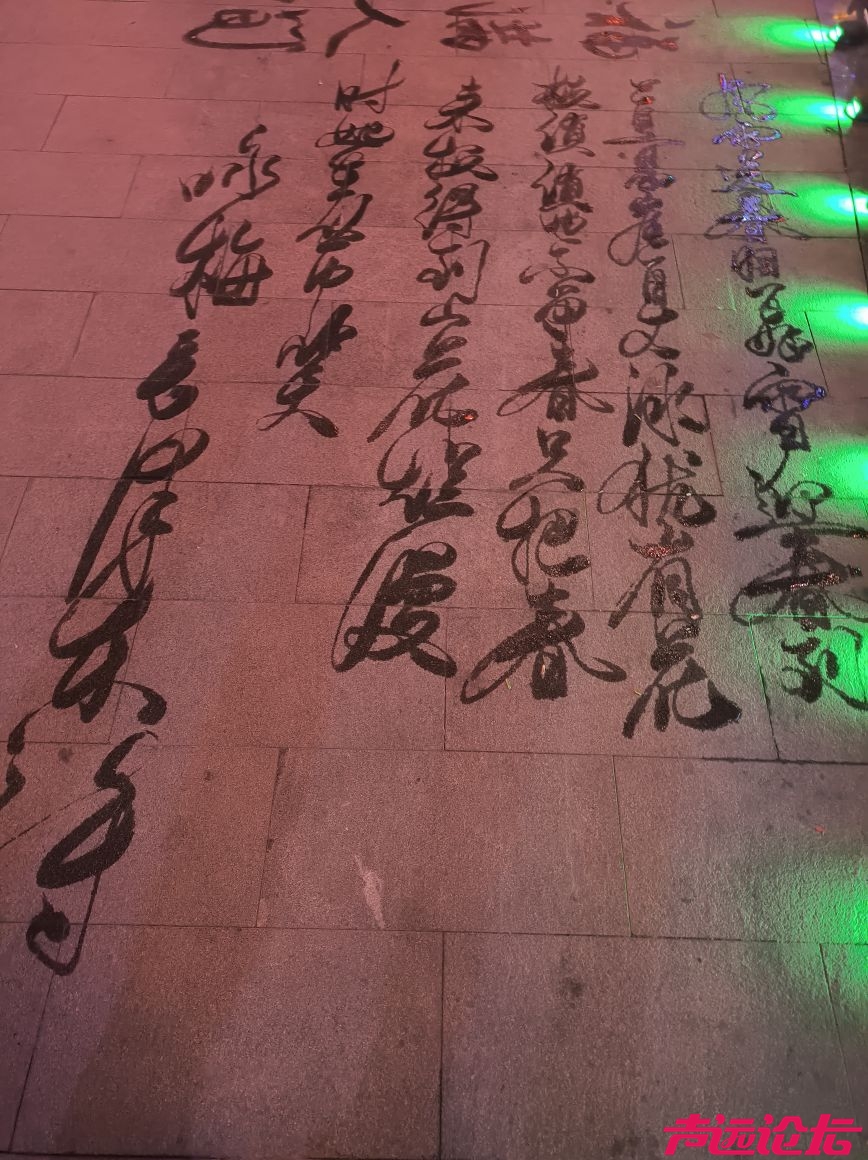 福满人间
风雨送春归飞雪迎春到
已是悬崖百丈冰犹有花
枝俏俏也不争春只把春
来报待到山花烂漫
时她在丛中笑
咏梅毛泽东
声远论坛